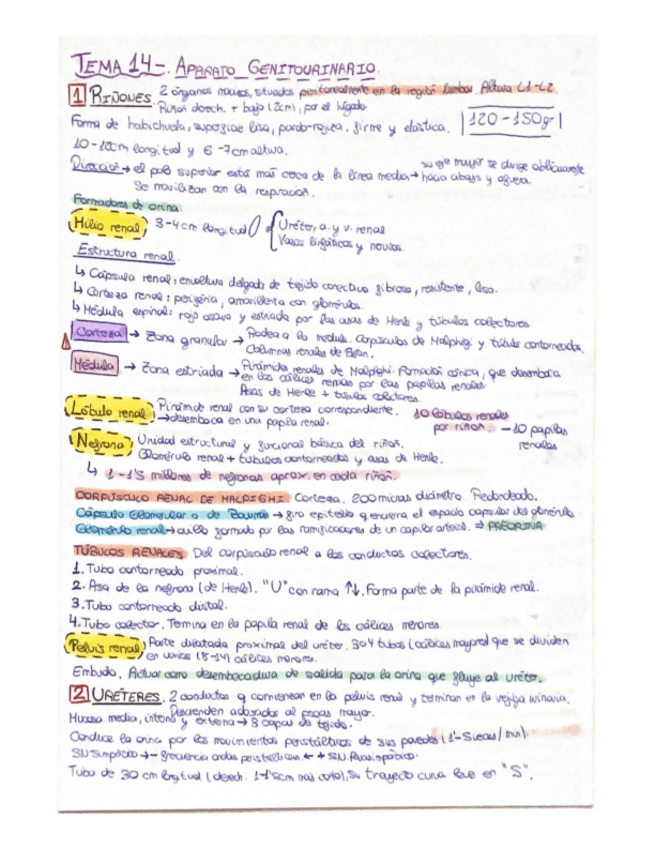 TEMA 14-. APARATO GENITOURINARIO.
1 RIÑONES. 2 órganos macizos, situados posteriormente en la región lumbar. Altura L1-L2
Riñon derech. + bajo (2cm), por el hígado.
Forma de habichuela, superficie lisa, pardo-rojiza, firme y elastica. |120-150gr|
10-12cm longitud y 6-7cm altura.
Dirección → el polo superior está más cerca de la línea media → su eje mayor se dirige oblicuamente hacia abajo y afuera.
Se movilizan con la respiración.
Formadores de orina.
Hilio renal 3-4cm longitud { Uréter, a. y v. renal
Vasos linfáticos y nervios.
Estructura renal.
↳ Cápsula renal: envoltura delgada de tejido conectivo fibroso, resistente, liso.
↳ Corteza renal: periferia, amarillenta con glomérulos.
↳ Médula espinal: rojo oscuro y estriada por las asas de Henle y túbulos colectores.
Corteza → Zona granular → Rodea a la medula. Corpúsculos de Malpighi y túbulo contorneados.
Columnas renales de Bertin.
Médula → Zona estriada → Pirámides renales de Malpighi. Formación cónica, que desemboca
en los cálices renales por las papilas renales
Asas de Henle + tubulos colectores.
Lóbulo renal Pirámide renal con su corteza correspondiente. 10 lóbulos renales
→ desemboca en una papila renal. por riñón. - 10 papilas
renales
Nefrona Unidad estructural y funcional básica del riñón.
Glomérulo renal + tubulos contorneados y asas de Henle.
↳ 1-1'5 millones de nefronas aprox. en cada riñón.
CORPÚSCULO RENAL DE MALPIGHI Corteza. 200 micras diámetro Redondeado.
Cápsula Glomerular o de Bowman → epitelio q encierra el espacio capsular del glomérulo
Glomérulo renal → ovillo formado por las ramificaciones de un capilar arterial. ⇒ PREORINA
TÚBULOS RENALES Del corpúsculo renal a los conductos colectores.
1. Tubo contorneado proximal.
2. Asa de la nefrona (de Henle). "U" con rama ↑↓. Forma parte de la pirámide renal.
3. Tubo contorneado distal.
4. Tubo colector. Termina en la papila renal de los cálices menores.
Pelvis renal Parte dilatada proximal del uréter. 3 o 4 tubos (cálices mayores) que se dividen
en varios (8-14) cálices menores.
Embudo. Actuar como desembocadura de salida para la orina que fluye al uréter.
2 URÉTERES. 2 conductos q comienzan en la pelvis renal y terminan en la vejiga urinaria.
Descienden adosados al psoas mayor.
Mucosa media, interna y externa → 3 capas de tejido.
Conduce la orina por los movimientos peristálticos de sus paredes (1-5 veces/min).
SN Simpático → - frecuencia ondas peristálticas ← + SN. Parasimpático.
Tubo de 30 cm longitud (derech. 1-1'5cm más corto), Su trayecto curva leve en "S".